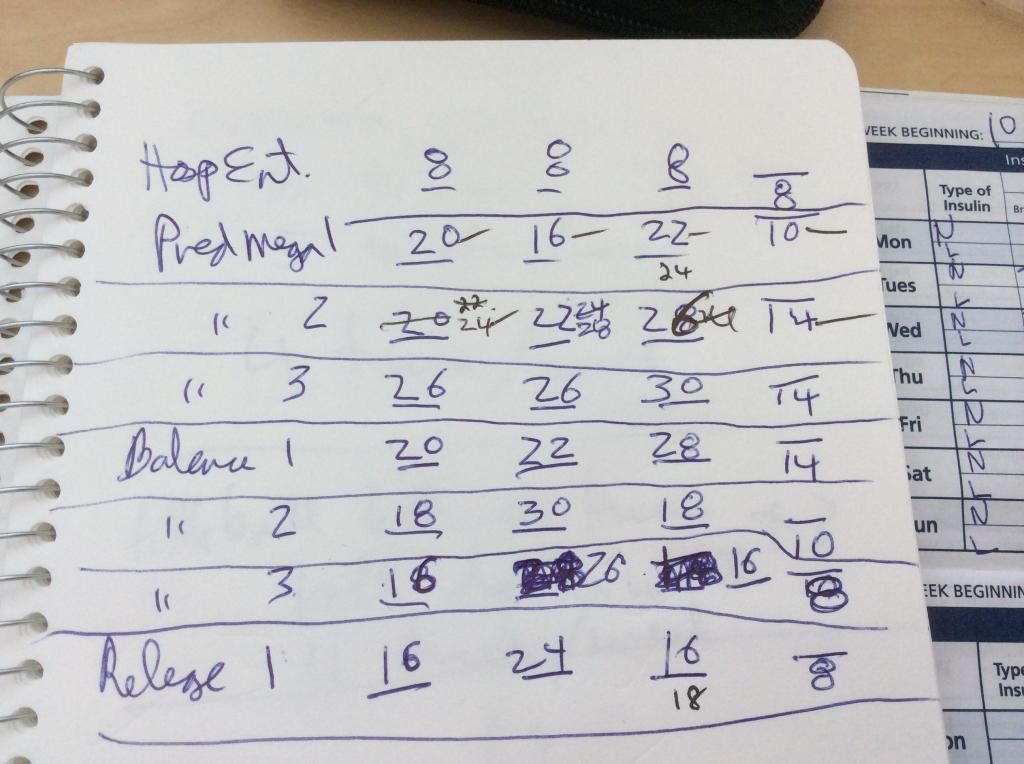 Hosp Ent. 8 8 8 8
Pred Megal 20 16 22 10
24
" 2 20 22 24 22 24 28 28 24 14
" 3 26 26 30 14
Balence 1 20 22 28 14
" 2 18 30 18 10
" 3 16 26 16 8
Release 1 16 24 16 8
18
WEEK BEGINNING: 10
Ins
Type of
Insulin
Br
Mon
Tues
Wed
Thu
Fri
Sat
Sun
WEEK BEGINNIN
Type
Insu
on